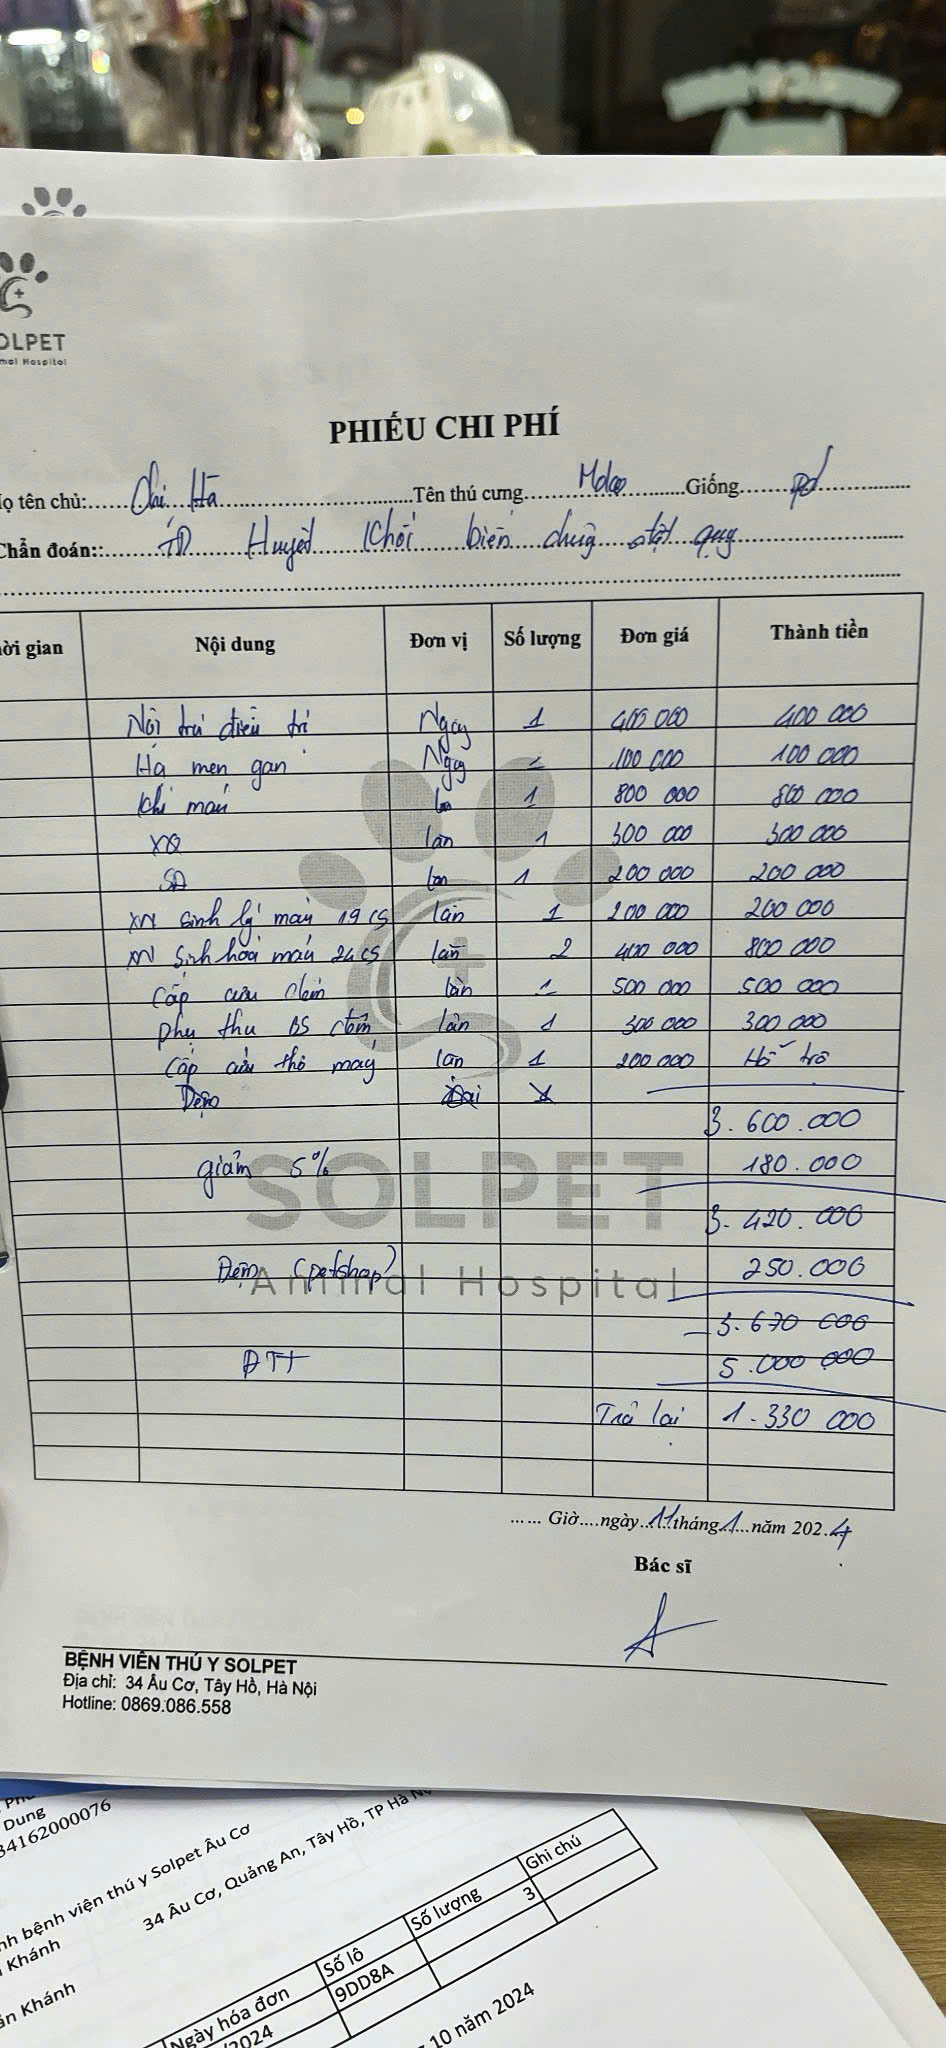 OLPET
mal Hospital
PHIẾU CHI PHÍ
Họ tên chủ: Chị Hà Tên thú cưng Giống
Chẩn đoán: TD Huyết khối biến chứng đột quỵ
ời gian Nội dung Đơn vị Số lượng Đơn giá Thành tiền
Nội trú điều trị Ngày 1 400 000 400 000
Hạ men gan Ngày 1 100 000 100 000
Khí máu lần 1 800 000 800 000
XQ lần 1 300 000 300 000
SA lần 1 200 000 200 000
XN sinh lý máu 19 CS lần 1 200 000 200 000
XN Sinh hóa máu 24 CS lần 2 400 000 800 000
Cấp cứu đêm lần 1 500 000 500 000
Phụ thu BS đêm lần 1 300 000 300 000
Cấp cứu thở máy lần 1 200 000 Hỗ trợ
Đệm
3.600.000
giảm 5% 180.000
3.420.000
Đệm (petshop) 250.000
3.670 000
ĐTT 5.000 000
Trả lại 1.330 000
...... Giờ....ngày 11 tháng 1 năm 2024
Bác sĩ
SOLPET
Animal Hospital
BỆNH VIÊN THÚ Y SOLPET
Địa chỉ: 34 Âu Cơ, Tây Hồ, Hà Nội
Hotline: 0869.086.558
Dung
34162000076
nh bệnh viện thú y Solpet Âu Cơ
34 Âu Cơ, Quảng An, Tây Hồ, TP Hà N
Khánh
ấn Khánh
Ngày hóa đơn Số lô Số lượng Ghi chú
/2024 9DD8A 3
10 năm 2024